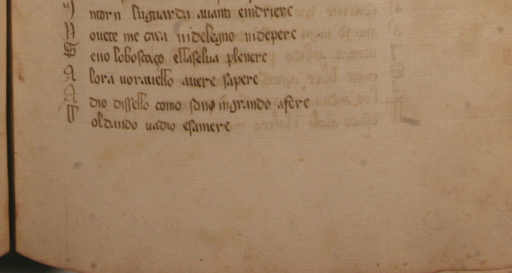 ntorn sluguarda auanti eindriere
N ouete me caua nidelegno nidepere
S eno loboscaço ellaselua pleuere
A lora uorauello auere sapere
A dio dissello como sono ingrando afere
T oldando uadio esamere